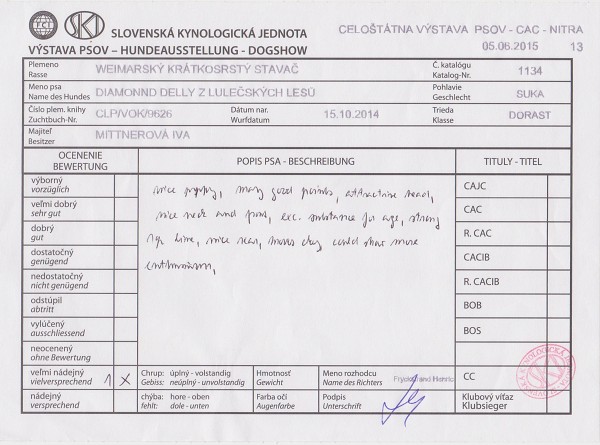 FCI
SKJ
SLOVENSKÁ KYNOLOGICKÁ JEDNOTA
VÝSTAVA PSOV – HUNDEAUSSTELLUNG - DOGSHOW
CELOŠTÁTNA VÝSTAVA PSOV - CAC - NITRA
05.06.2015 13
Plemeno
Rasse
WEIMARSKÝ KRÁTKOSRSTÝ STAVAČ
Č. katalógu
Katalog-Nr.
1134
Meno psa
Name des Hundes
DIAMONND DELLY Z LULEČSKÝCH LESŮ
Pohlavie
Geschlecht
SUKA
Číslo plem. knihy
Zuchtbuch-Nr.
CLP/VOK/9626
Dátum nar.
Wurfdatum
15.10.2014
Trieda
Klasse
DORAST
Majiteľ
Besitzer
MITTNEROVÁ IVA
OCENENIE
BEWERTUNG
POPIS PSA - BESCHREIBUNG
TITULY - TITEL
výborný
vorzüglich
veľmi dobrý
sehr gut
dobrý
gut
dostatočný
genügend
nedostatočný
nicht genügend
odstúpil
abtritt
vylúčený
ausschliessend
neocenený
ohne Bewertung
veľmi nádejný
vielversprechend
1 X
nádejný
versprechend
nice puppy, many good points, attractive head,
nice neck and front, exc. substance for age, strong
top line, nice rear, moves okay could show more
enthusiasm,
CAJC
CAC
R. CAC
CACIB
R. CACIB
BOB
BOS
CC
Klubový víťaz
Klubsieger
Chrup: úplný - volstandig
Gebiss: neúplný - unvolstandig
chýba: hore - oben
fehlt: dole - unten
Hmotnosť
Gewicht
Farba očí
Augenfarbe
Meno rozhodcu
Name des Richters
Podpis
Unterschrift